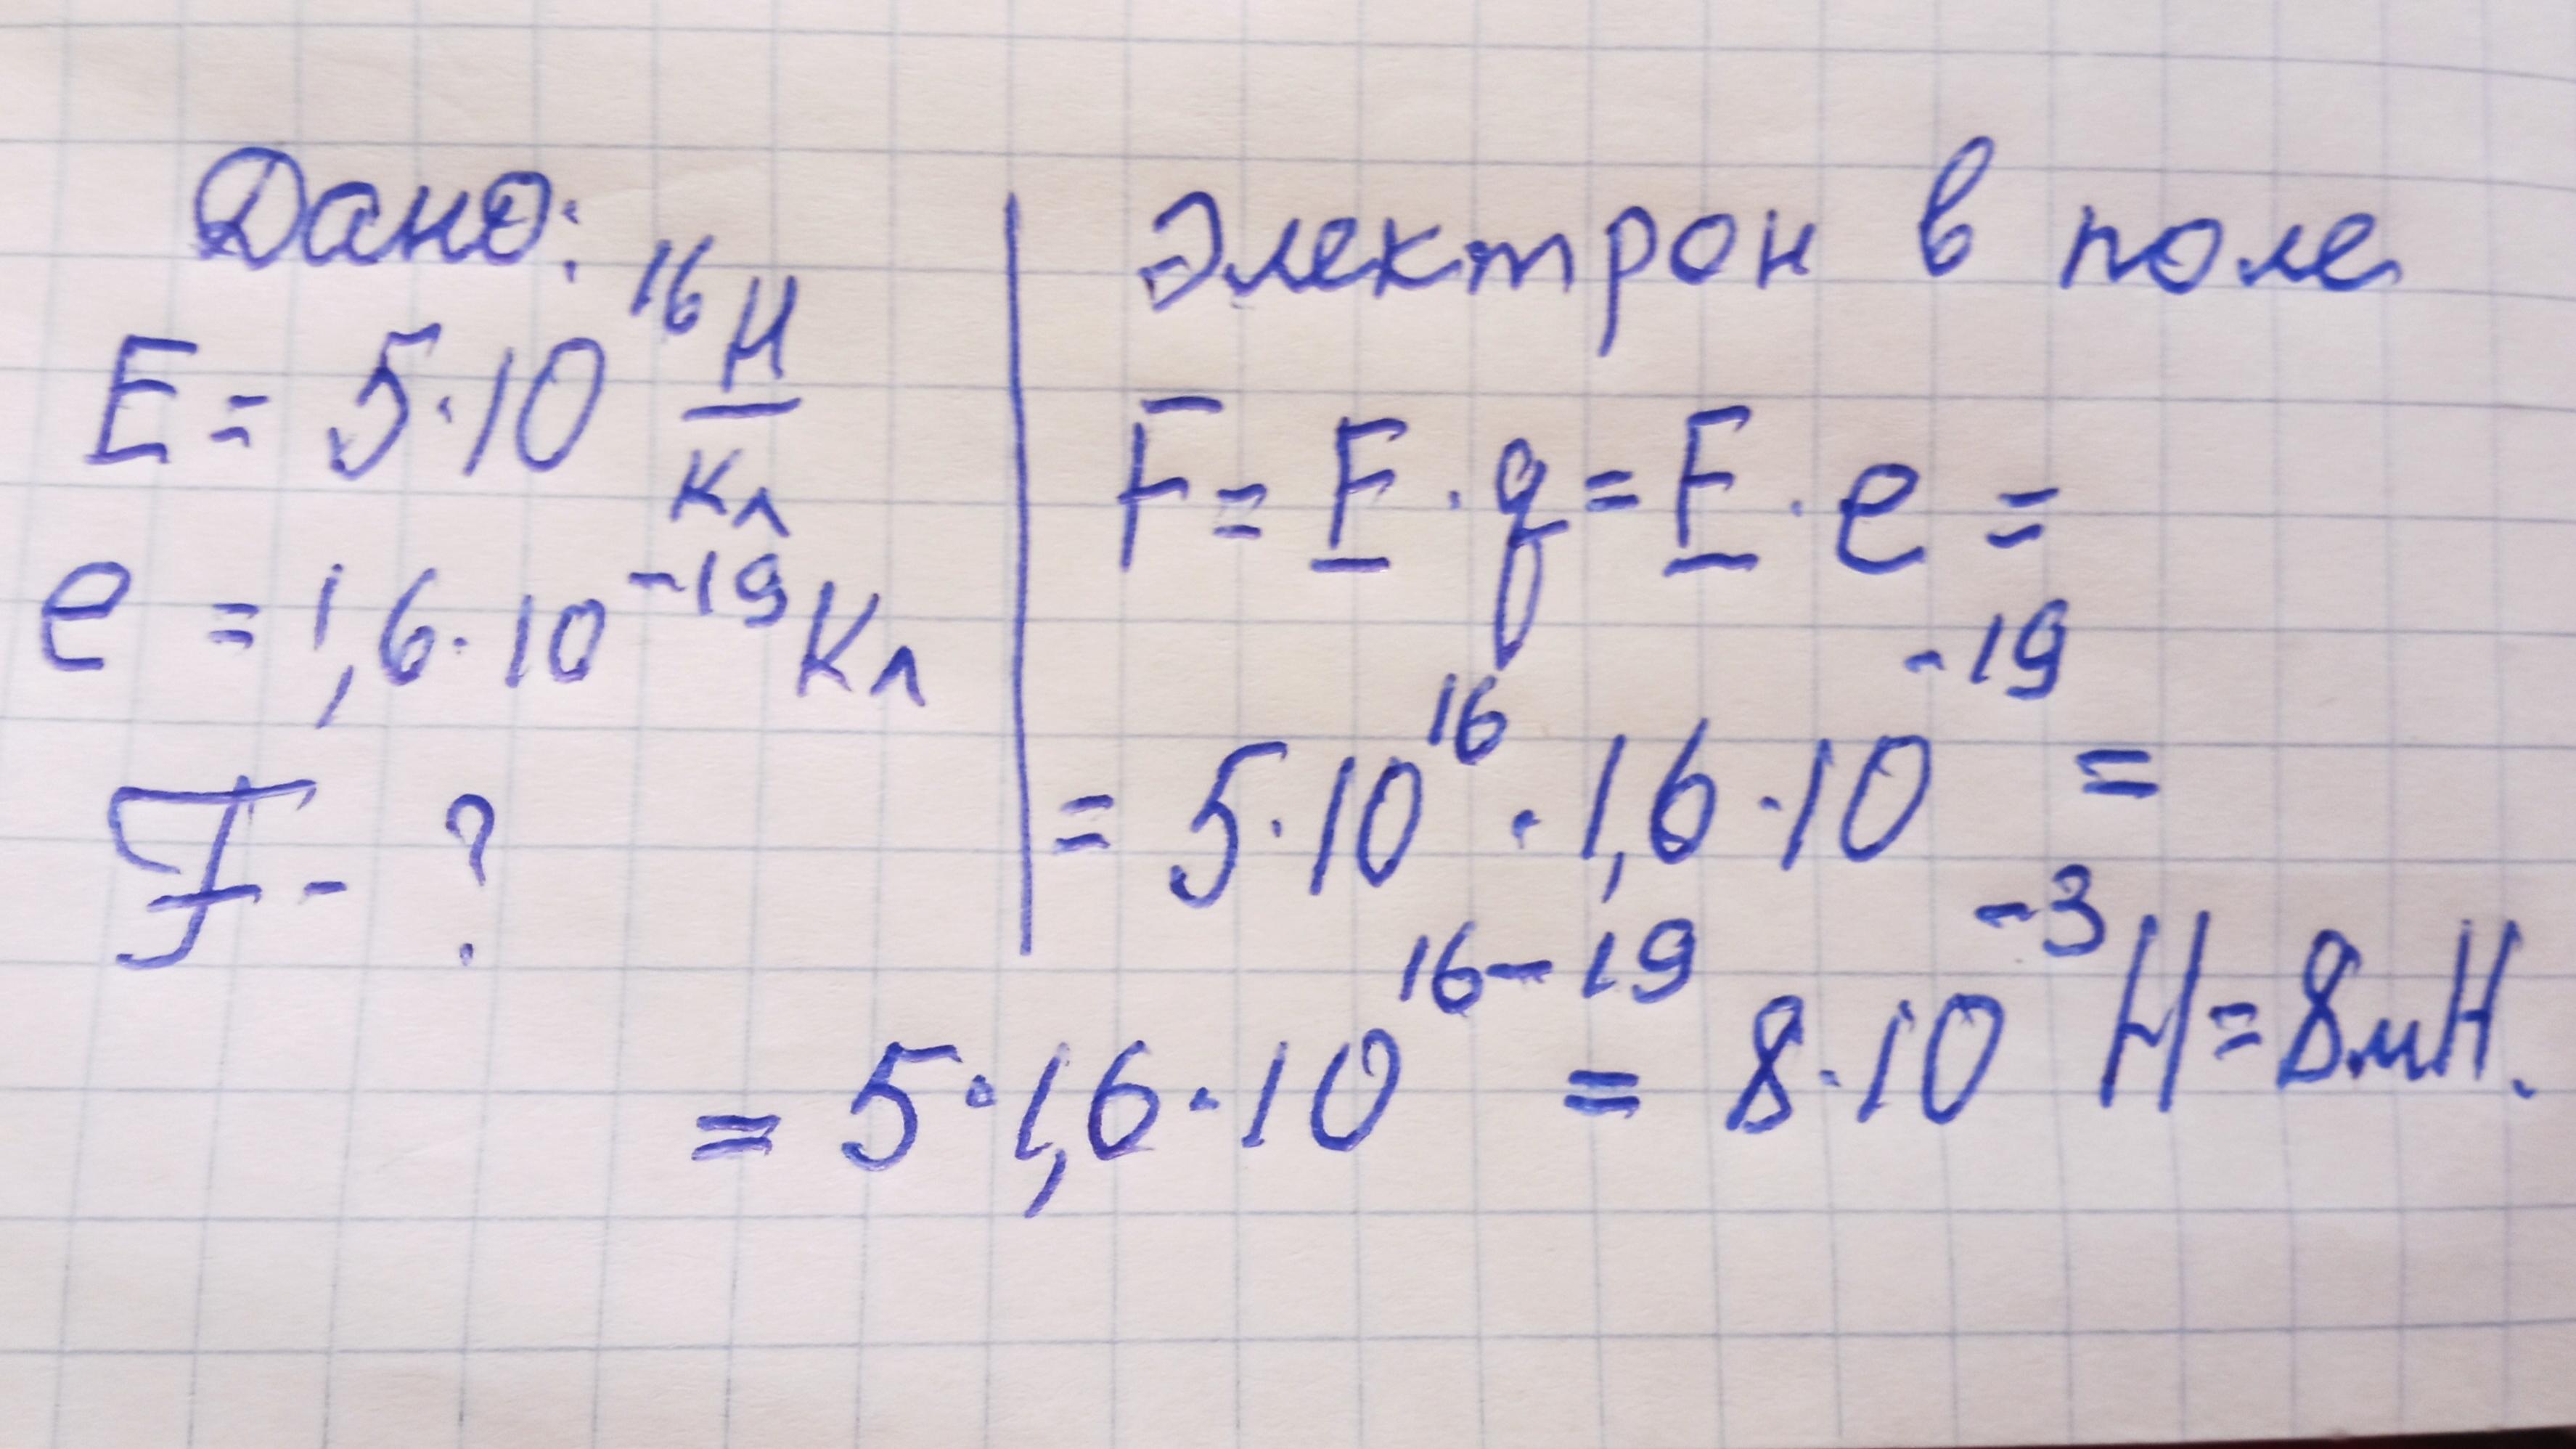 Дано:
E = 5·10¹⁶ Н/Кл
e = 1,6·10⁻¹⁹ Кл
F - ?
Электрон в поле
F = E · q = E · e =
= 5·10¹⁶ · 1,6·10⁻¹⁹ =
= 5·1,6·10¹⁶⁻¹⁹ = 8·10⁻³ Н = 8мН.